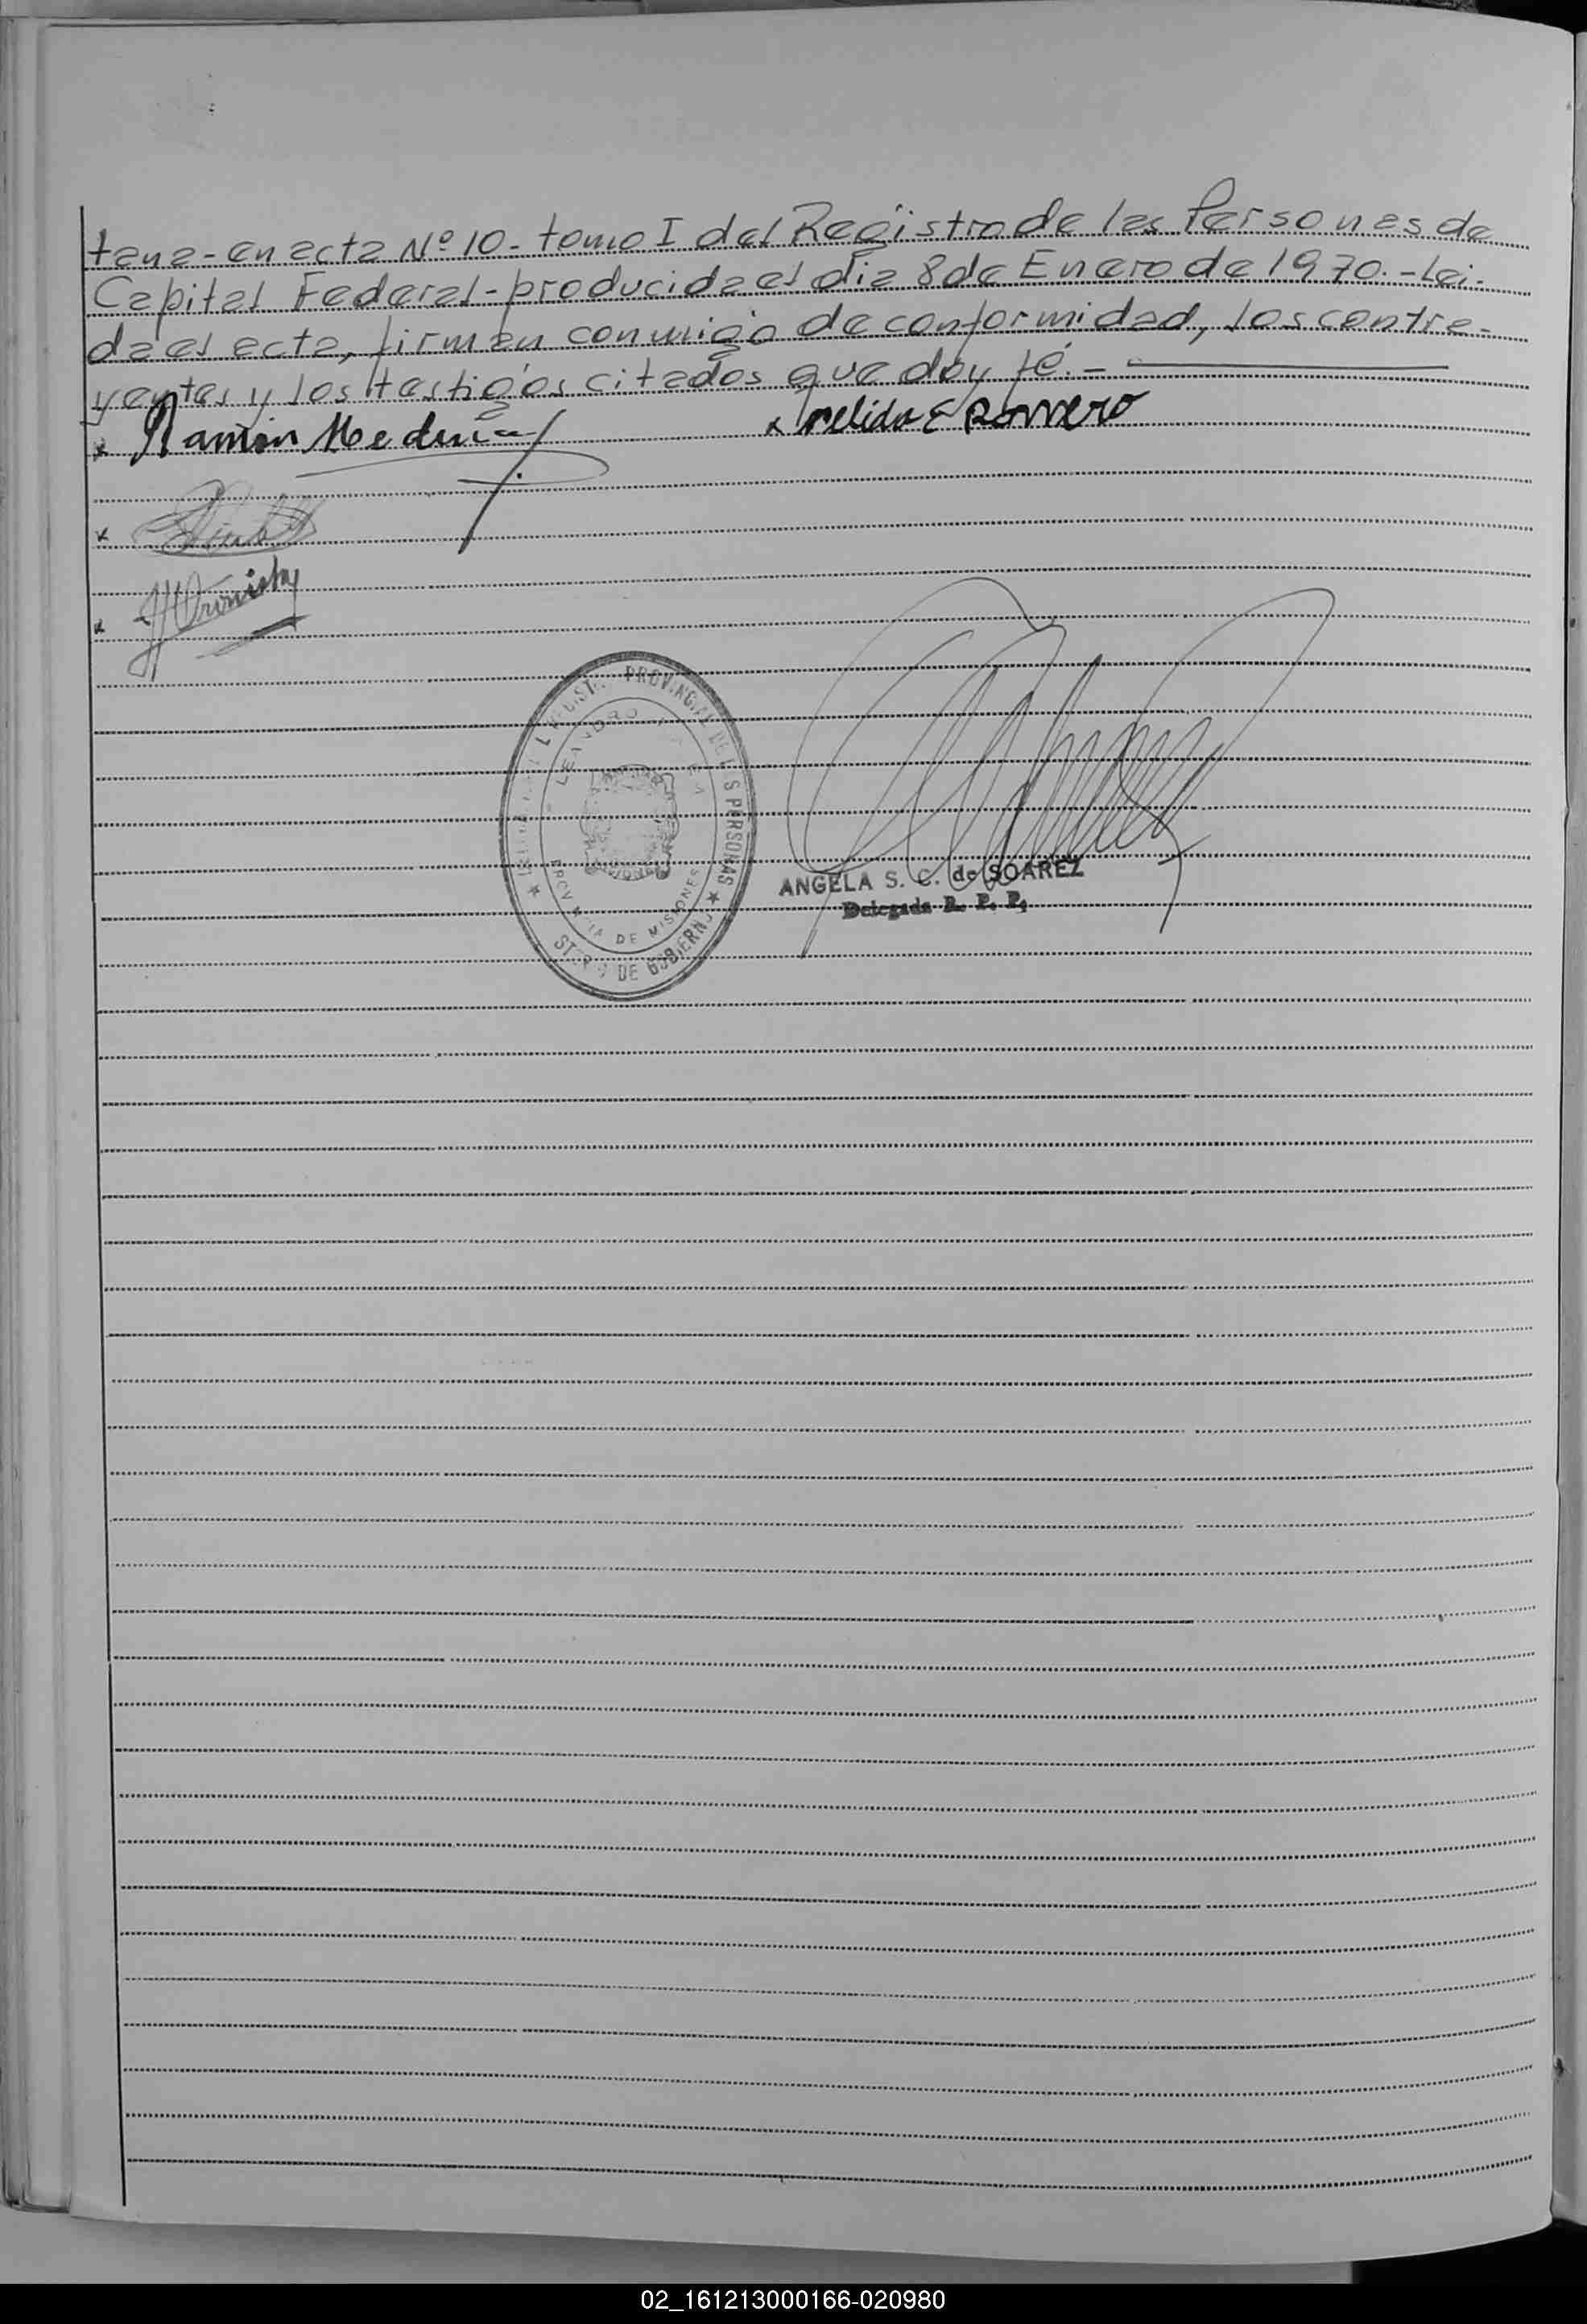 tana-en acta Nº 10- tomo I del Registro de las Personas de
Capital Federal-producida el dia 8 de Enero de 1970.-Lei-
da el acta, firman conmigo de conformidad, los contra-
yentes y los testigos citados que doy fé.-
x Ramón Medina x Nelida E Romero
x
x
PROVINCIAL DE LAS PERSONAS
LEANDRO
PROVINCIA DE MISIONES
DE GOBIERNO
ANGELA S. C. de SOAREZ
Delegada R. P. P.
02_161213000166-020980